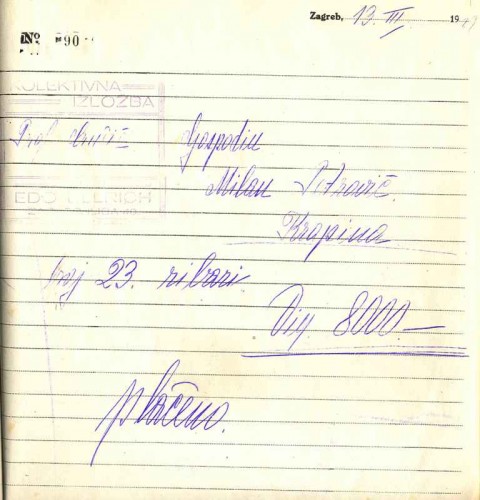 Zagreb, 13. III. 19
No 90
KOLEKTIVNA
IZLOŽBA
Prof Gospodin
Milan Petrović.
Krapina
broj 23. ribari
Din 8000.—
plaćeno.